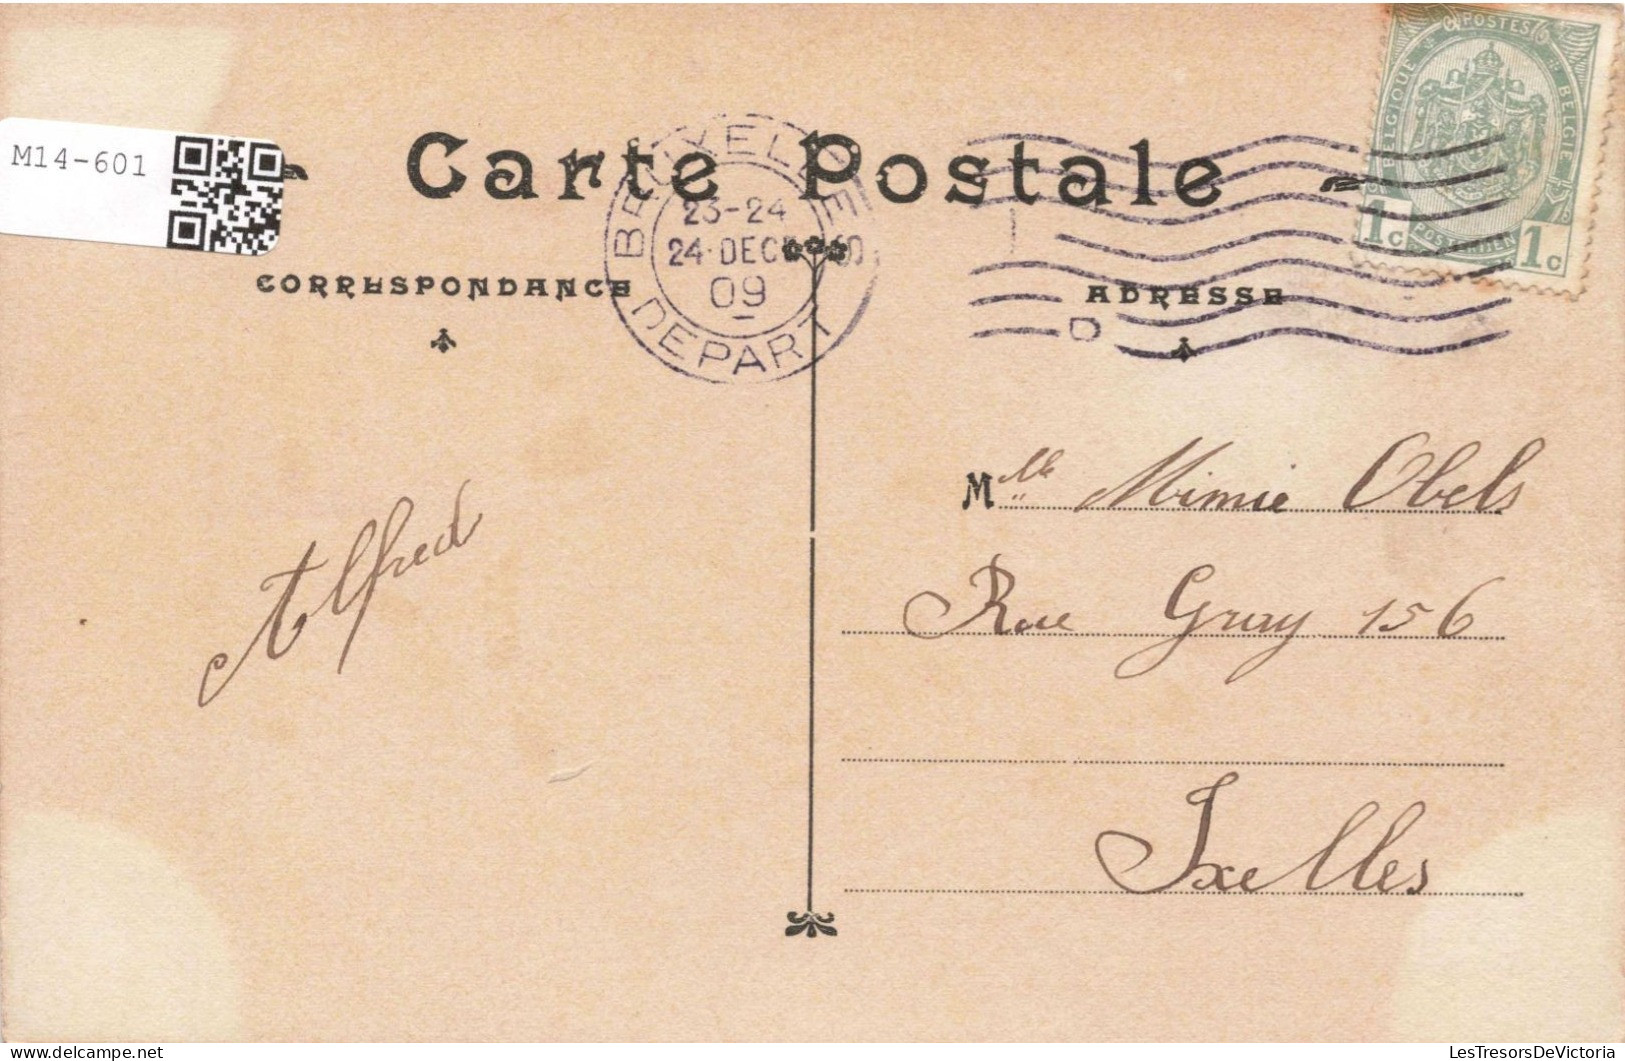 M14-601
Carte Postale
BRUXELLES
23-24
24·DEC
09
DEPART
POSTES
BELGIQUE
BELGIE
POSTERIJEN
1c
1c
CORRESPONDANCE
ADRESSE
Alfred
Mlle Mimie Obels
Rue Gray 156
Ixelles
LesTresorsDeVictoria